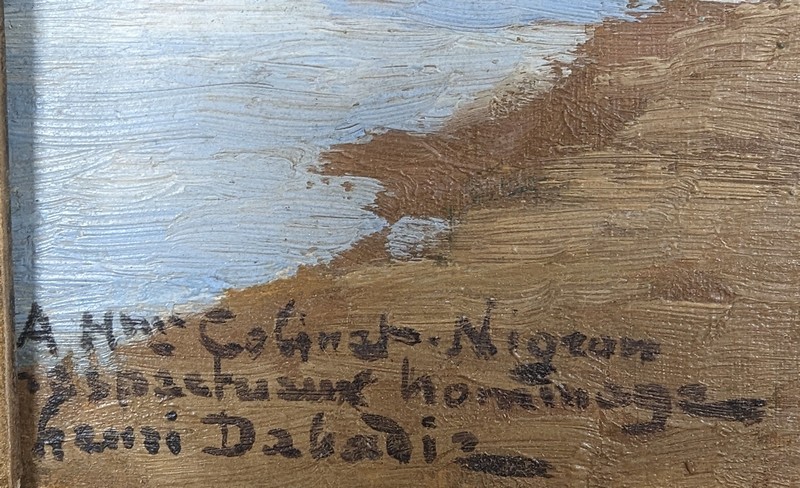 A Mme Colinet-Migeon
respectueux hommage
henri Dabadie